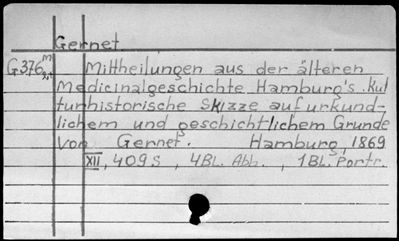 Gernet
G376m Mittheilungen aus der älteren
Medicinalgeschichte Hamburg's. Kul
turhistorische Skizze auf urkund-
lichem und geschichtlichem Grunde
von Gernet. Hamburg, 1869
XII, 409 S, 4 Bl. Abh., 1 Bl. Portr.